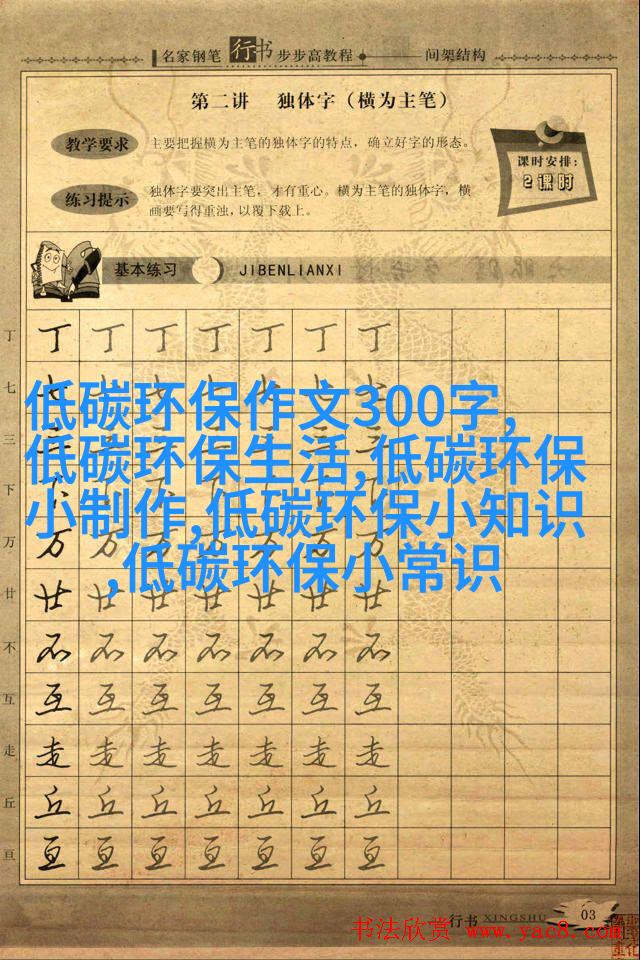 名家钢笔 行书 步步高教程 间架结构
第二讲 独体字（横为主笔）
教学要求 主要把握横为主笔的独体字的特点，确立好字的形态。
课时安排：
2课时
练习提示 独体字要突出主笔，才有重心。横为主笔的独体字，横
画要写得重浊，以覆下载上。
基本练习 JIBENLIANXI
丁 丁 丁 丁 丁 丁 丁 丁
七 七
低碳环保作文300字,
三
低碳环保生活,低碳环保
下
小制作,低碳环保小知识
万 万 万 万 万 万 万 万
,低碳环保小常识
廿 廿 廿 廿 廿 廿 廿 廿
不 不 不 不 不 不 不 不
互 互 互 互 互 互 互 互
走 走 走 走 走 走 走 走
丘 丘 丘 丘 丘 丘 丘 丘
亘 亘 亘 亘 亘 亘 亘 亘
行书 XINGSHU 03
书法欣赏 www.yac8.com